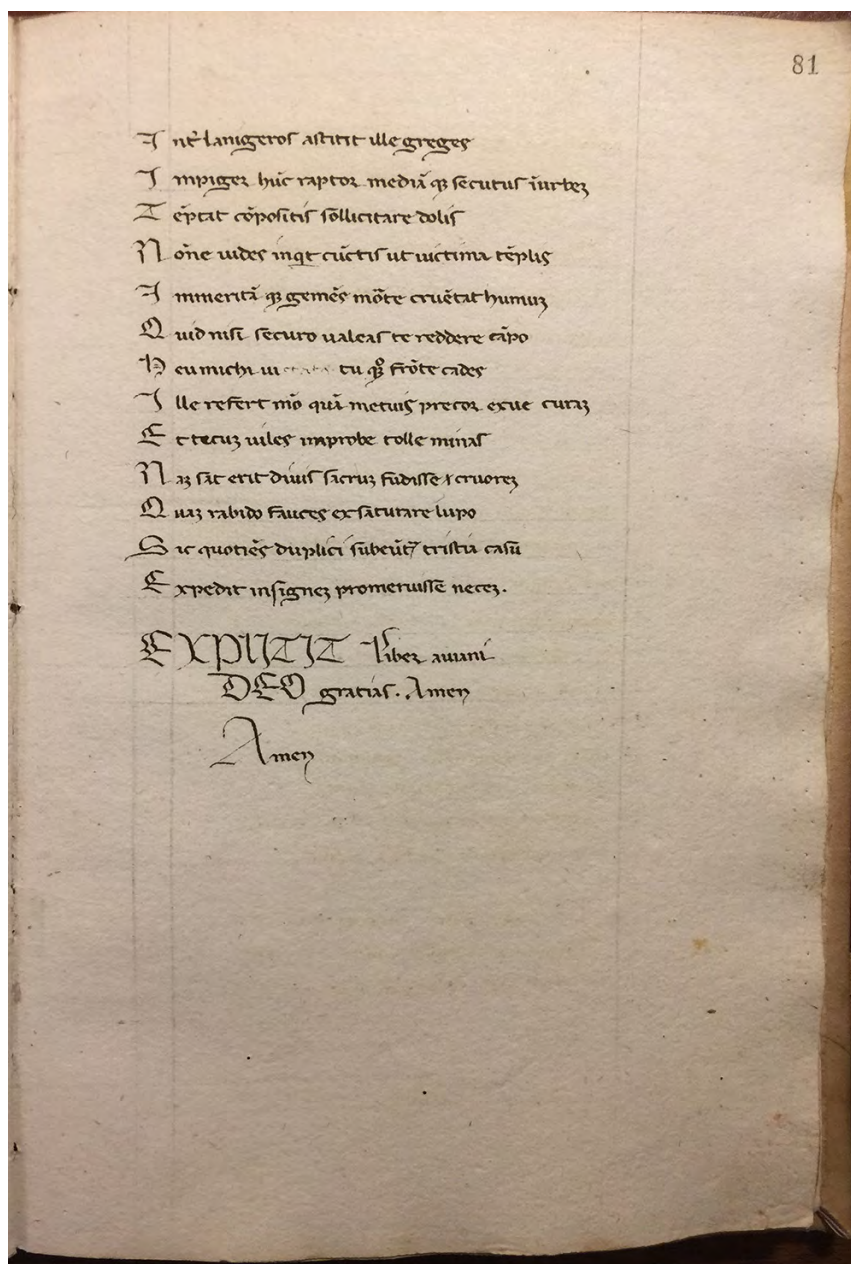 81
I nt̃ lanigeros astitit ille greges
I mpiger hũc raptor mediã qꝫ secutus ĩurbeꝫ
T ẽptat cõpositis sollicitare dolis
N õne uides inqt cũctis ut uictima tẽplis
I mmeritã qꝫ gemẽs mõte cruẽtat humuꝫ
Q uid nisi securo ualeas te reddere cãpo
H eu michi tu qꝫ frõte cades
I lle refert mõ quã metuis precor exue curaꝫ
E t tecuꝫ uiles improbe tolle minas
N aꝫ sat erit diuis sacruꝫ fũdisse cruoreꝫ
Q uaꝫ rabido fauces exsaturare lupo
S ic quotiẽs duplici subeũt tristia casũ
E xpedit insigneꝫ promeruisse neceꝫ.
EXPLICIT liber auiani
DEO gracias. Amen
Amen